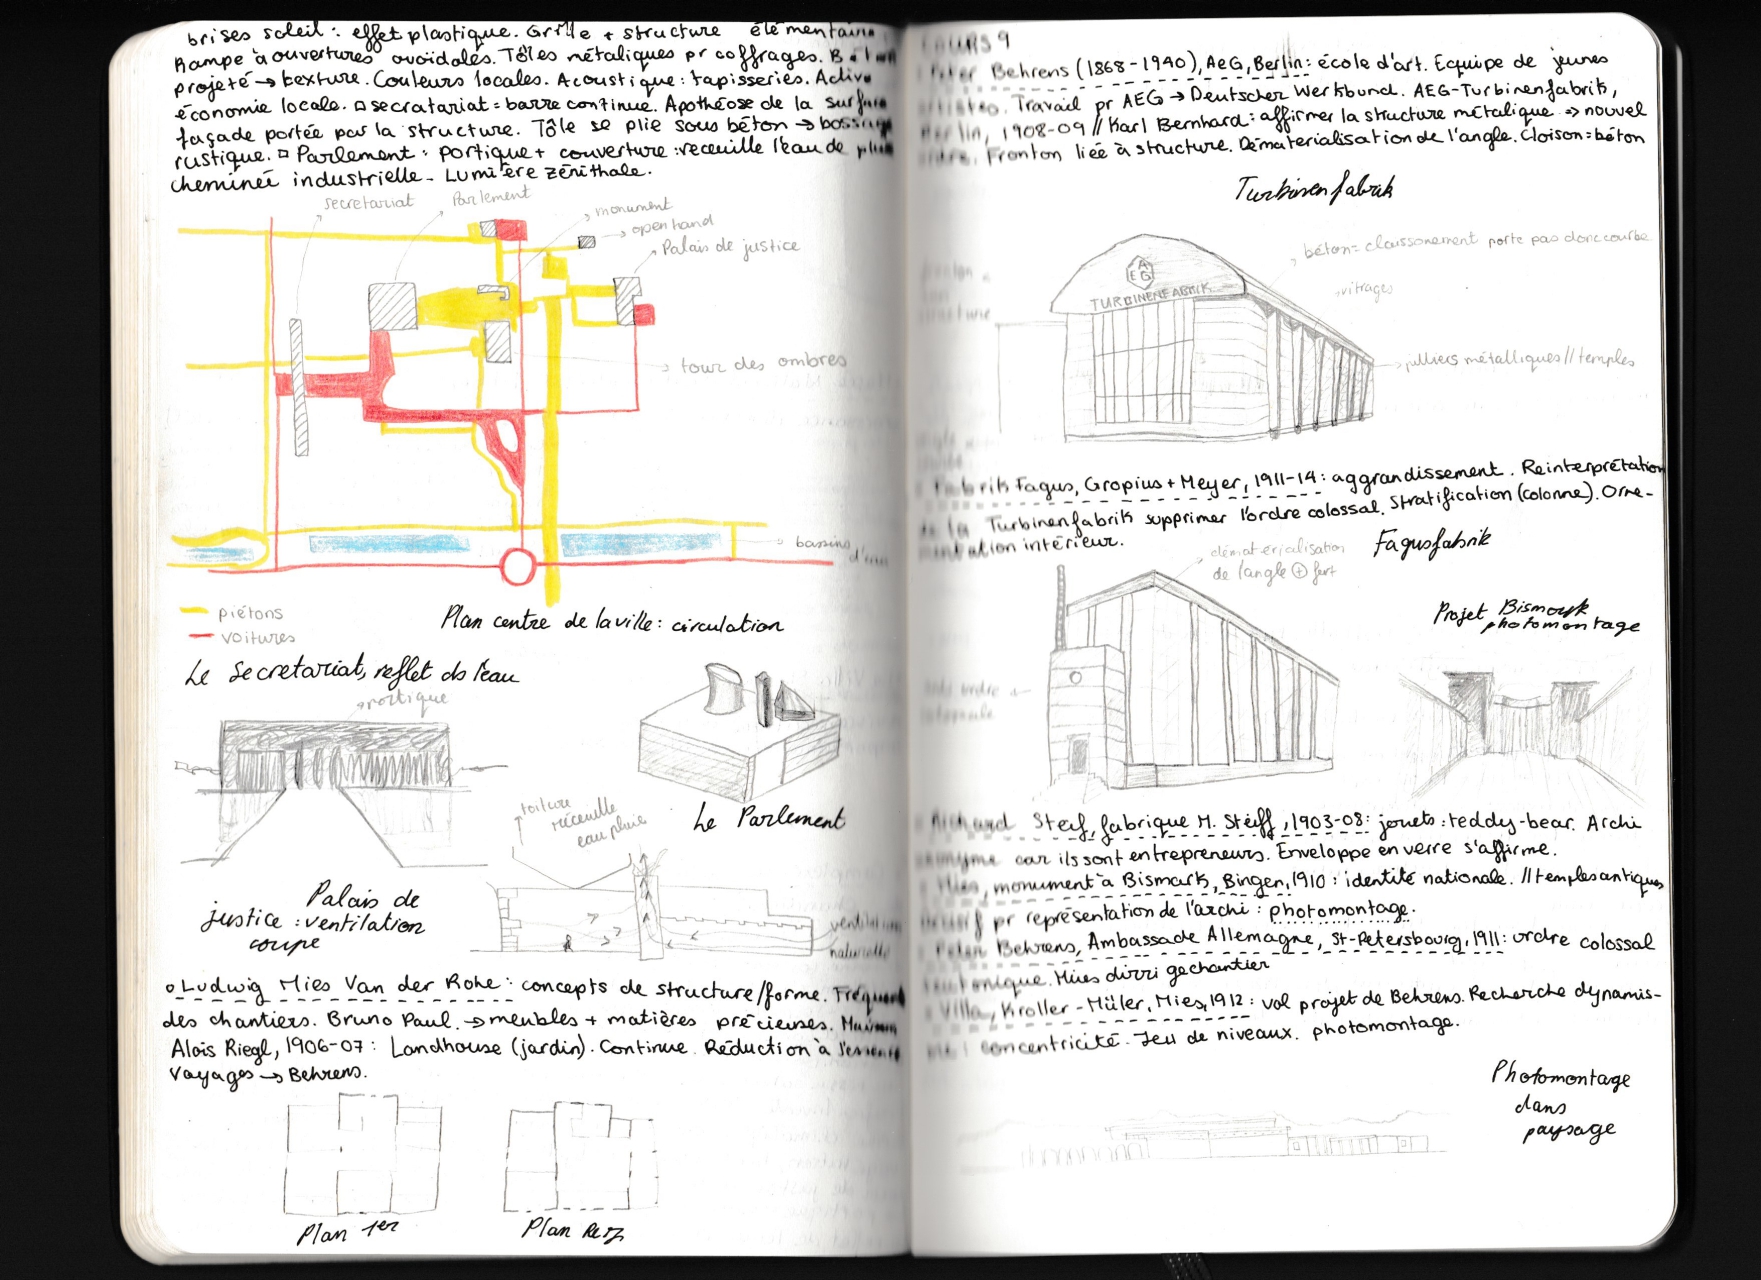 brises soleil : effet plastique. Grille + structure élémentaire
Rampe à ouvertures ovoïdales. Tôles métaliques pr coffrages. Béton
projeté → texture. Couleurs locales. Acoustique : tapisseries. Active
économie locale. □ secratariat = barre continue. Apothéose de la surface
façade portée par la structure. Tôle se plie sous béton → bossage
rustique. □ Parlement : portique + couverture : receuille l'eau de pluie
cheminée industrielle - Lumière zénithale.
secretariat
Parlement
monument
open hand
Palais de justice
tour des ombres
bassins d'eau
piétons
voitures
Plan centre de la ville : circulation
Le Secretariat, reflet ds l'eau
portique
Le Parlement
toiture
réceuille
eau pluie
Palais de
justice : ventilation
coupe
ventilation
naturelle
o Ludwig Mies Van der Rohe : concepts de structure/forme. Fréquent
des chantiers. Bruno Paul. → meubles + matières précieuses. Maison
Alois Riegl, 1906-07 : Landhouse (jardin). Continue. Réduction à l'essence
Voyages → Behrens.
Plan 1er
Plan Rez
COURS 9
Peter Behrens (1868-1940), AEG, Berlin : école d'art. Equipe de jeunes
artistes. Travail pr AEG → Deutscher Werkbund. AEG-Turbinenfabrik,
Berlin, 1908-09 // Karl Bernhard : affirmer la structure métalique. ⇒ nouvel
ordre. Fronton liée à structure. Dématerialisation de l'angle. Cloison = béton
Turbinenfabrik
béton = cloissonement porte pas donc courbe
vitrages
piliers métalliques // temples
fronton =
structure
AEG
TURBINENFABRIK
Fabrik Fagus, Gropius + Meyer, 1911-14 : aggrandissement. Reinterprétation
de la Turbinenfabrik supprimer l'ordre colossal. Stratification (colonne). Orne-
mentation intérieur.
Fagusfabrik
dématérialisation
de l'angle ⊕ fort
Projet Bismark
photomontage
ordre
Richard Steif, fabrique M. Steiff, 1903-08 : jouets : teddy-bear. Archi
anonyme car ils sont entrepreneurs. Enveloppe en verre s'affirme.
Mies, monument à Bismark, Bingen, 1910 : identité nationale. // temples antiques
pr représentation de l'archi : photomontage.
Peter Behrens, Ambassade Allemagne, St-Petersbourg, 1911 : ordre colossal
teutonique. Mies dirrige chantier
Villa, Kroller-Müler, Mies, 1912 : vol projet de Behrens. Recherche dynamis-
me : concentricité. Jeu de niveaux. photomontage.
Photomontage
dans
paysage